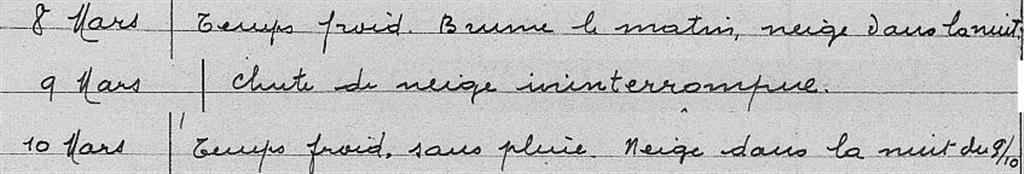 8 Mars Temps froid. Brume le matin, neige dans la nuit.
9 Mars Chute de neige ininterrompue.
10 Mars Temps froid, sans pluie. Neige dans la nuit du 9/10